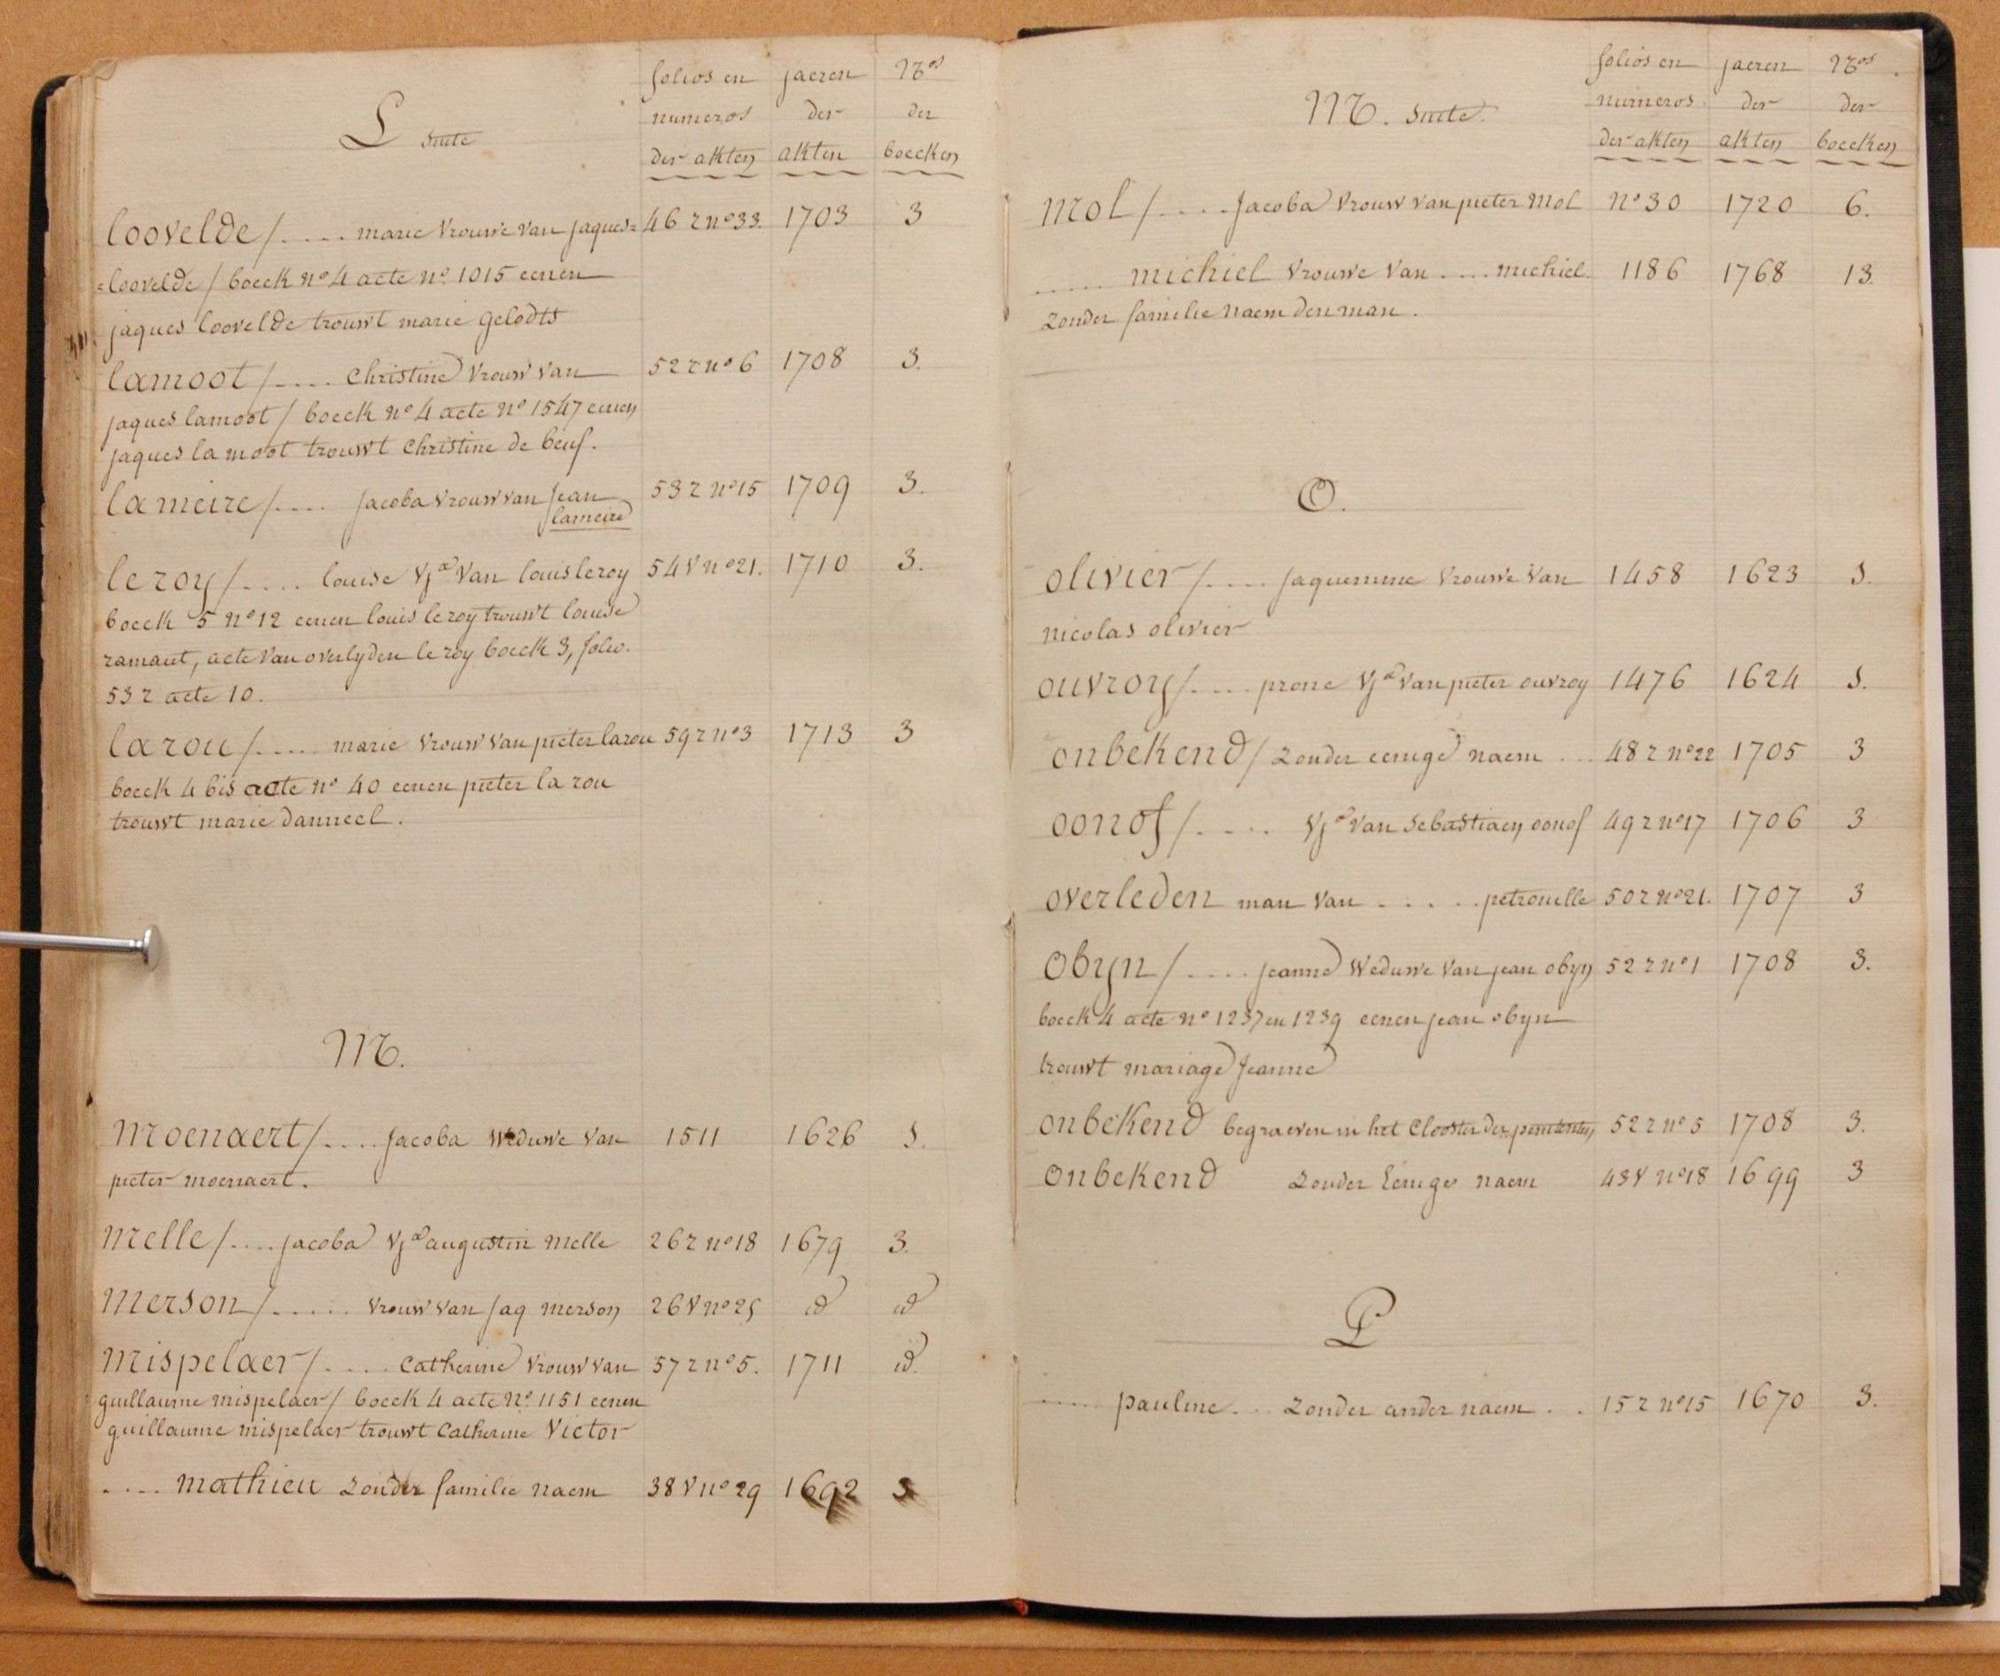 L suite
folios en jaeren N.os
numeros der der
der akten akten boecken
loovelde / .... marie vrouwe van jaques= 46 r n° 33. 1703 3
=loovelde / boeck n° 4 acte n° 1015 eenen
jaques loovelde trouwt marie gelodts
lamoot / .... christine vrouw van 52 r n° 6 1708 3.
jaques lamoot / boeck n° 4 acte n° 1547 eenen
jaques lamoot trouwt christine de beuf.
lameire / .... jacoba vrouw van jean 53 r n° 15 1709 3.
lameire
leroy / .... louise Vjª van louis leroy 54 v n° 21. 1710 3.
boeck 5 n° 12 eenen louis leroy trouwt louise
ramaut, acte van overlyden le roy boeck 3, folio.
53 r acte 10.
larou / .... marie vrouw van pieter larou 59 r n° 3 1713 3
boeck 4 bis acte n° 40 eenen pieter la rou
trouwt marie danneel.
M.
moenaert / .... jacoba weduwe van 1511 1626 1.
pieter moenaert.
melle / .... jacoba Vjª augustin melle 26 r n° 18 1679 3.
merson / ..... vrouw van jaq merson 26 v n° 25 id id
mispelaer / .... catherine vrouw van 57 r n° 5. 1711 id.
guillaume mispelaer / boeck 4 acte n° 1151 eenen
guillaume mispelaer trouwt catherine victor
.... mathieu zonder familie naem 38 v n° 29 1692 3
M. suite.
folios en jaeren N.os
numeros der der
der akten akten boecken
mol / .... jacoba vrouw van pieter mol n° 30 1720 6.
..... michiel vrouwe van .... michiel. 1186 1768 13.
zonder familie naem den man.
O.
olivier / .... jaquemine vrouwe van 1458 1623 1.
nicolas olivier
ouvroy / .... prone Vjª van pieter ouvroy 1476 1624 1.
onbekend / zonder eenige naem ... 48 r n° 22 1705 3
oonof / .... Vjª van sebastiaen oonof 49 r n° 17 1706 3
overleden man van ..... petronille 50 r n° 21. 1707 3
obyn / .... jeanne weduwe van jean obyn 52 r n° 1 1708 3.
boeck 4 acte n° 1237 en 1239 eenen jean obyn
trouwt mariage jeanne
onbekend begraeven in het clooster der penitenten 52 r n° 5 1708 3.
onbekend zonder eenige naem 43 v n° 18 1699 3
P
..... pauline ... zonder ander naem .. 15 r n° 15 1670 3.